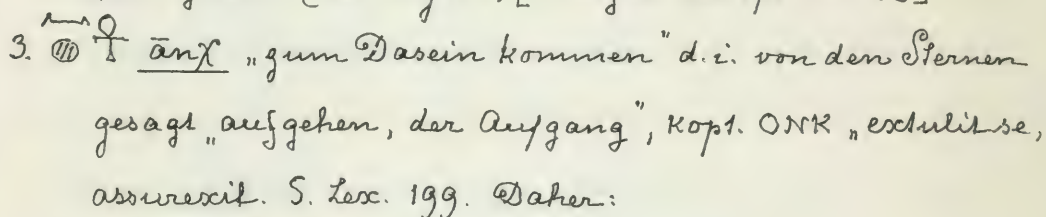 3. 𓈖𓐍𓋹 ānχ „zum Dasein kommen" d.i. von den Sternen
gesagt „aufgehen, der Aufgang", Kopt. ONK „extulit se,
assurexit. S. Lex. 199. Daher: